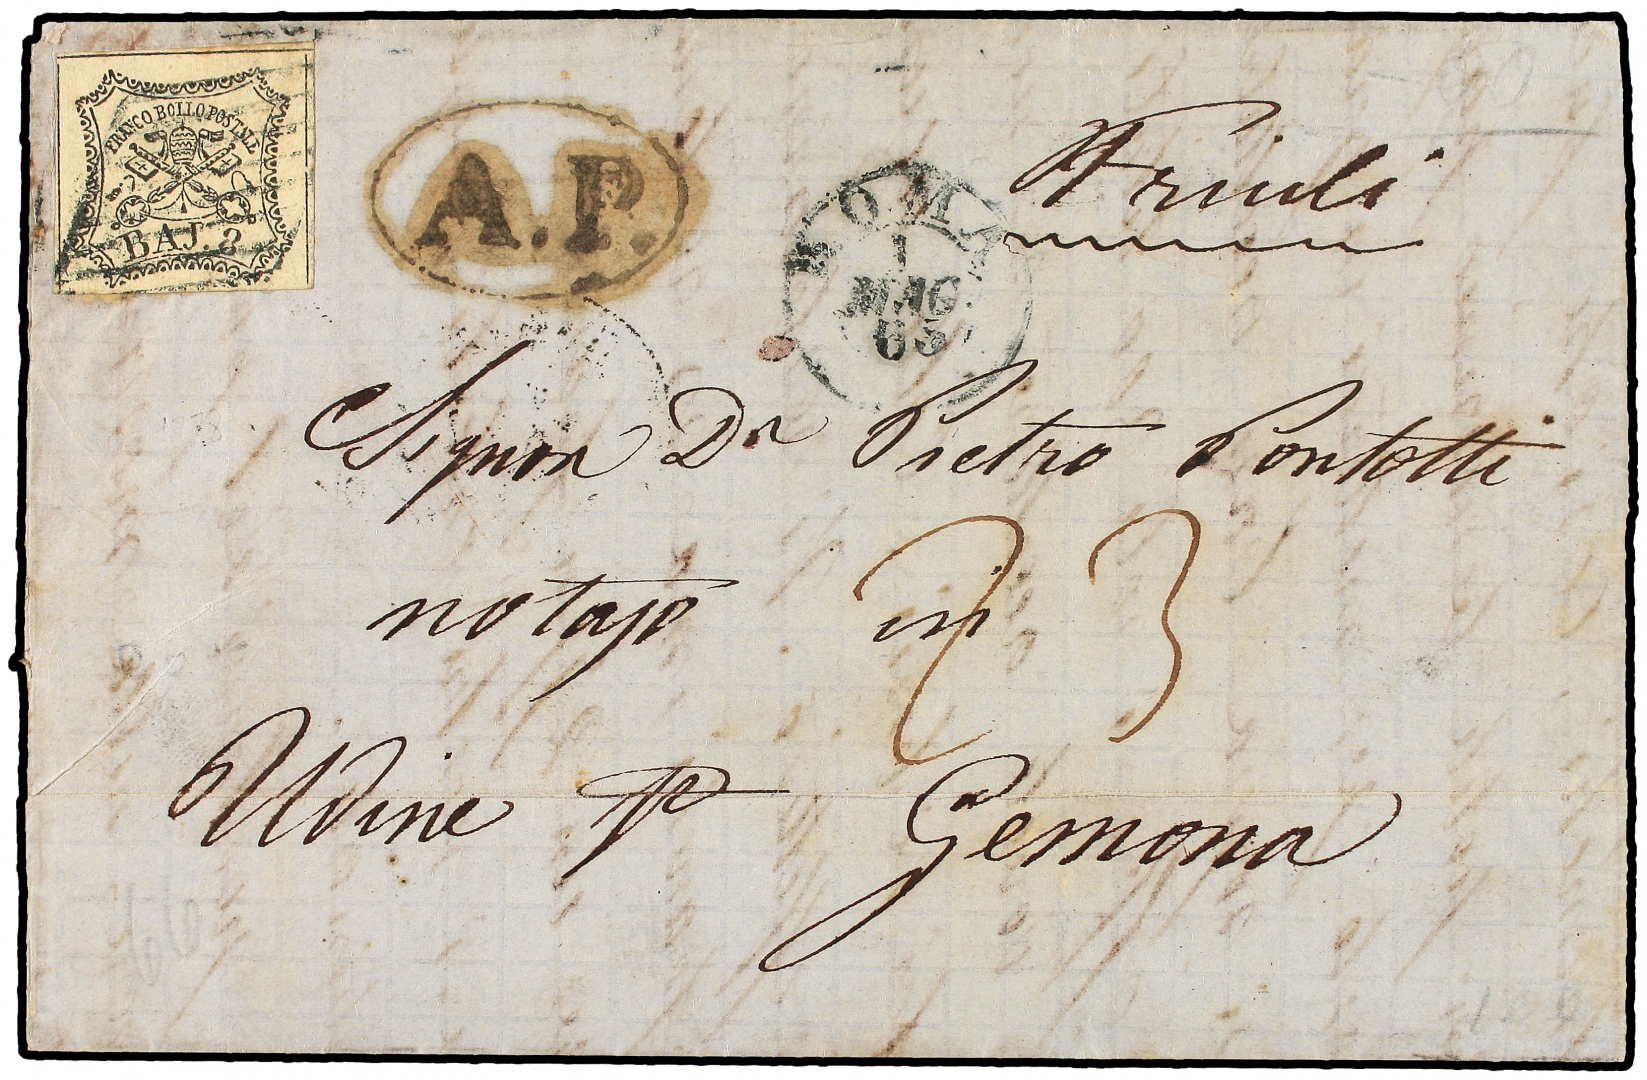 FRANCO BOLLO POSTALE
BAJ. 8
A.P.
ROMA
1
MAG
63
Friuli
Signor Dn Pietro Pontotti
notajo in
23
Udine p Gemona